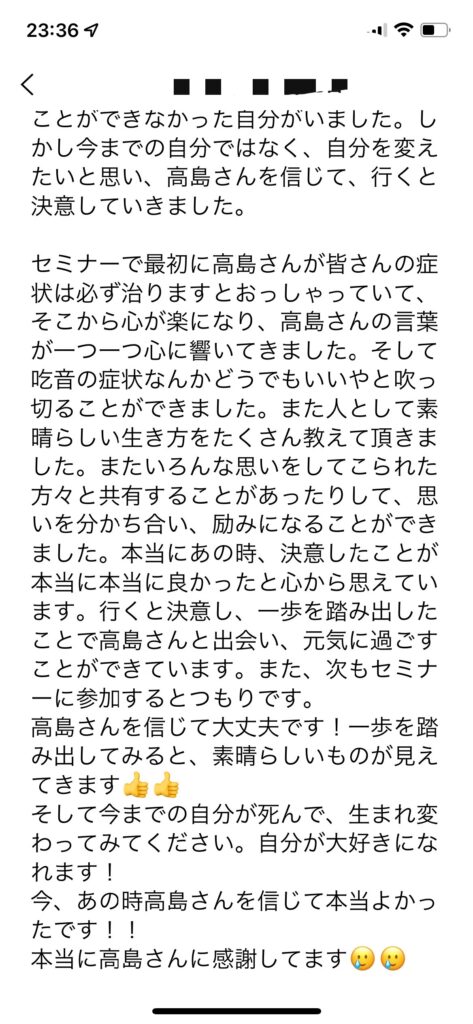 23:36
ことができなかった自分がいました。し
かし今までの自分ではなく、自分を変え
たいと思い、高島さんを信じて、行くと
決意していきました。
セミナーで最初に高島さんが皆さんの症
状は必ず治りますとおっしゃっていて、
そこから心が楽になり、高島さんの言葉
が一つ一つ心に響いてきました。そして
吃音の症状なんかどうでもいいやと吹っ
切ることができました。また人として素
晴らしい生き方をたくさん教えて頂きま
した。またいろんな思いをしてこられた
方々と共有することがあったりして、思
いを分かち合い、励みになることができ
ました。本当にあの時、決意したことが
本当に本当に良かったと心から思えてい
ます。行くと決意し、一歩を踏み出した
ことで高島さんと出会い、元気に過ごす
ことができています。また、次もセミナ
ーに参加するとつもりです。
高島さんを信じて大丈夫です！一歩を踏
み出してみると、素晴らしいものが見え
てきます👍👍
そして今までの自分が死んで、生まれ変
わってみてください。自分が大好きにな
れます！
今、あの時高島さんを信じて本当よかっ
たです！！
本当に高島さんに感謝してます🥲🥲